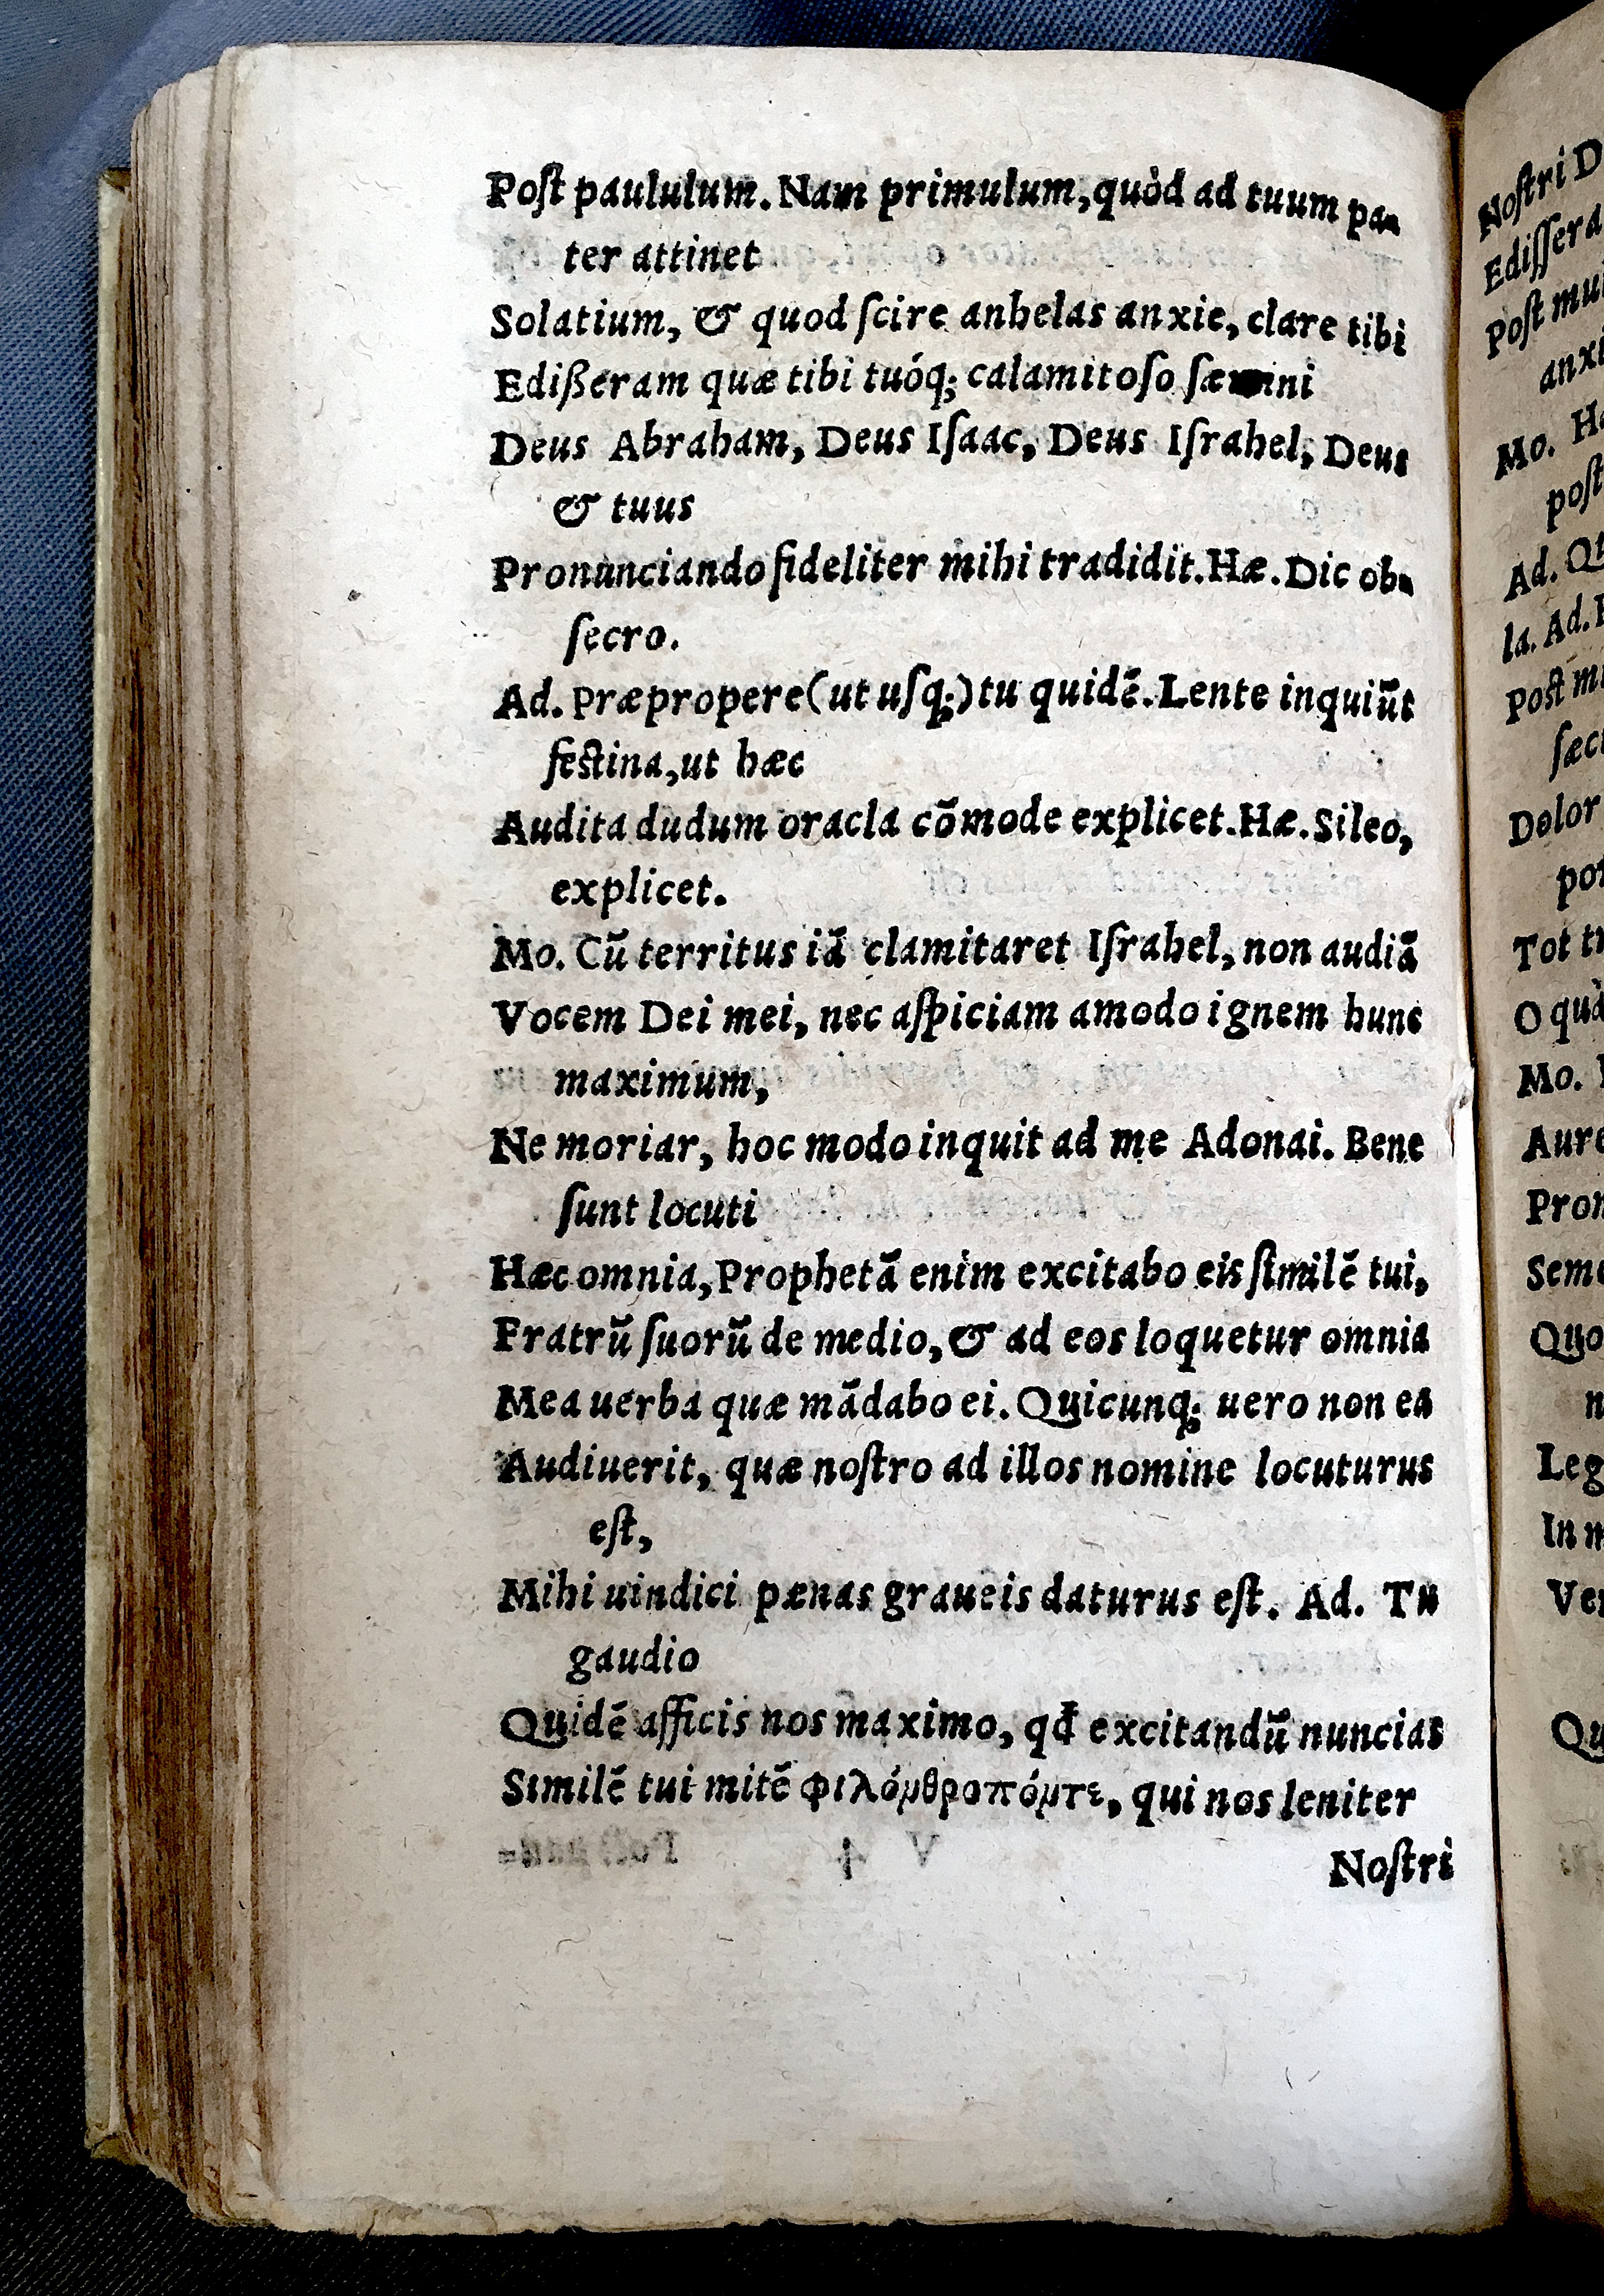 Poſt paululum. Nam primulum, quòd ad tuum pa-
ter attinet
Solatium, & quod ſcire anhelas anxie, clare tibi
Edißeram quæ tibi tuóq; calamitoſo
Deus Abraham, Deus Iſaac, Deus Iſrahel, Deus
& tuus
Pronunciando fideliter mihi tradidit. Hæ. Dic ob-
ſecro.
Ad. Præpropere (ut uſq;) tu quidē. Lente inquiūt
feſtina, ut hæc
Audita dudum oracla cōmode explicet. Hæ. Sileo,
explicet.
Mo. Cū territus iā clamitaret Iſrahel, non audiā
Vocem Dei mei, nec aſpiciam amodo ignem hunc
maximum,
Ne moriar, hoc modo inquit ad me Adonai. Bene
ſunt locuti
Hæc omnia, Prophetā enim excitabo eis ſimilē tui,
Fratrū ſuorū de medio, & ad eos loquetur omnia
Mea uerba quæ mādabo ei. Quicunq; uero non ea
Audiuerit, quæ noſtro ad illos nomine locuturus
eſt,
Mihi uindici pænas graueis daturus eſt. Ad. Tu
gaudio
Quidē afficis nos maximo, qđ excitandū nuncias
Similē tui mitē , qui nos leniter
Noſtri
Noſtri D
Ediſſera
Poſt mul
anxi
Mo. Hæ
poſt
Ad. Qu
la. Ad.
Poſt mu
ſæc
Dolor
por
Tot tr
O quà
Mo.
Aure
Pron
Seme
Quo
n
Leg
In m
Ver
Qu